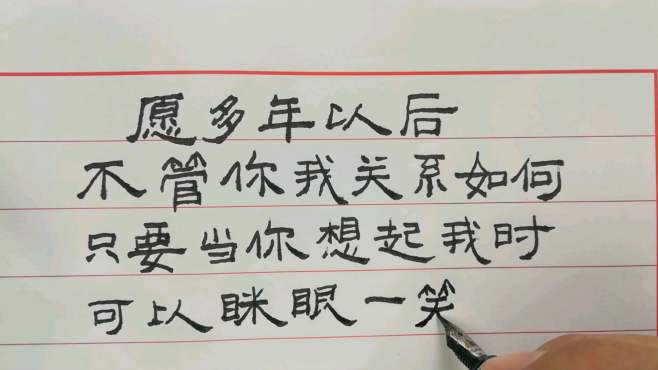 愿多年以后
不管你我关系如何
只要当你想起我时
可以眯眼一笑